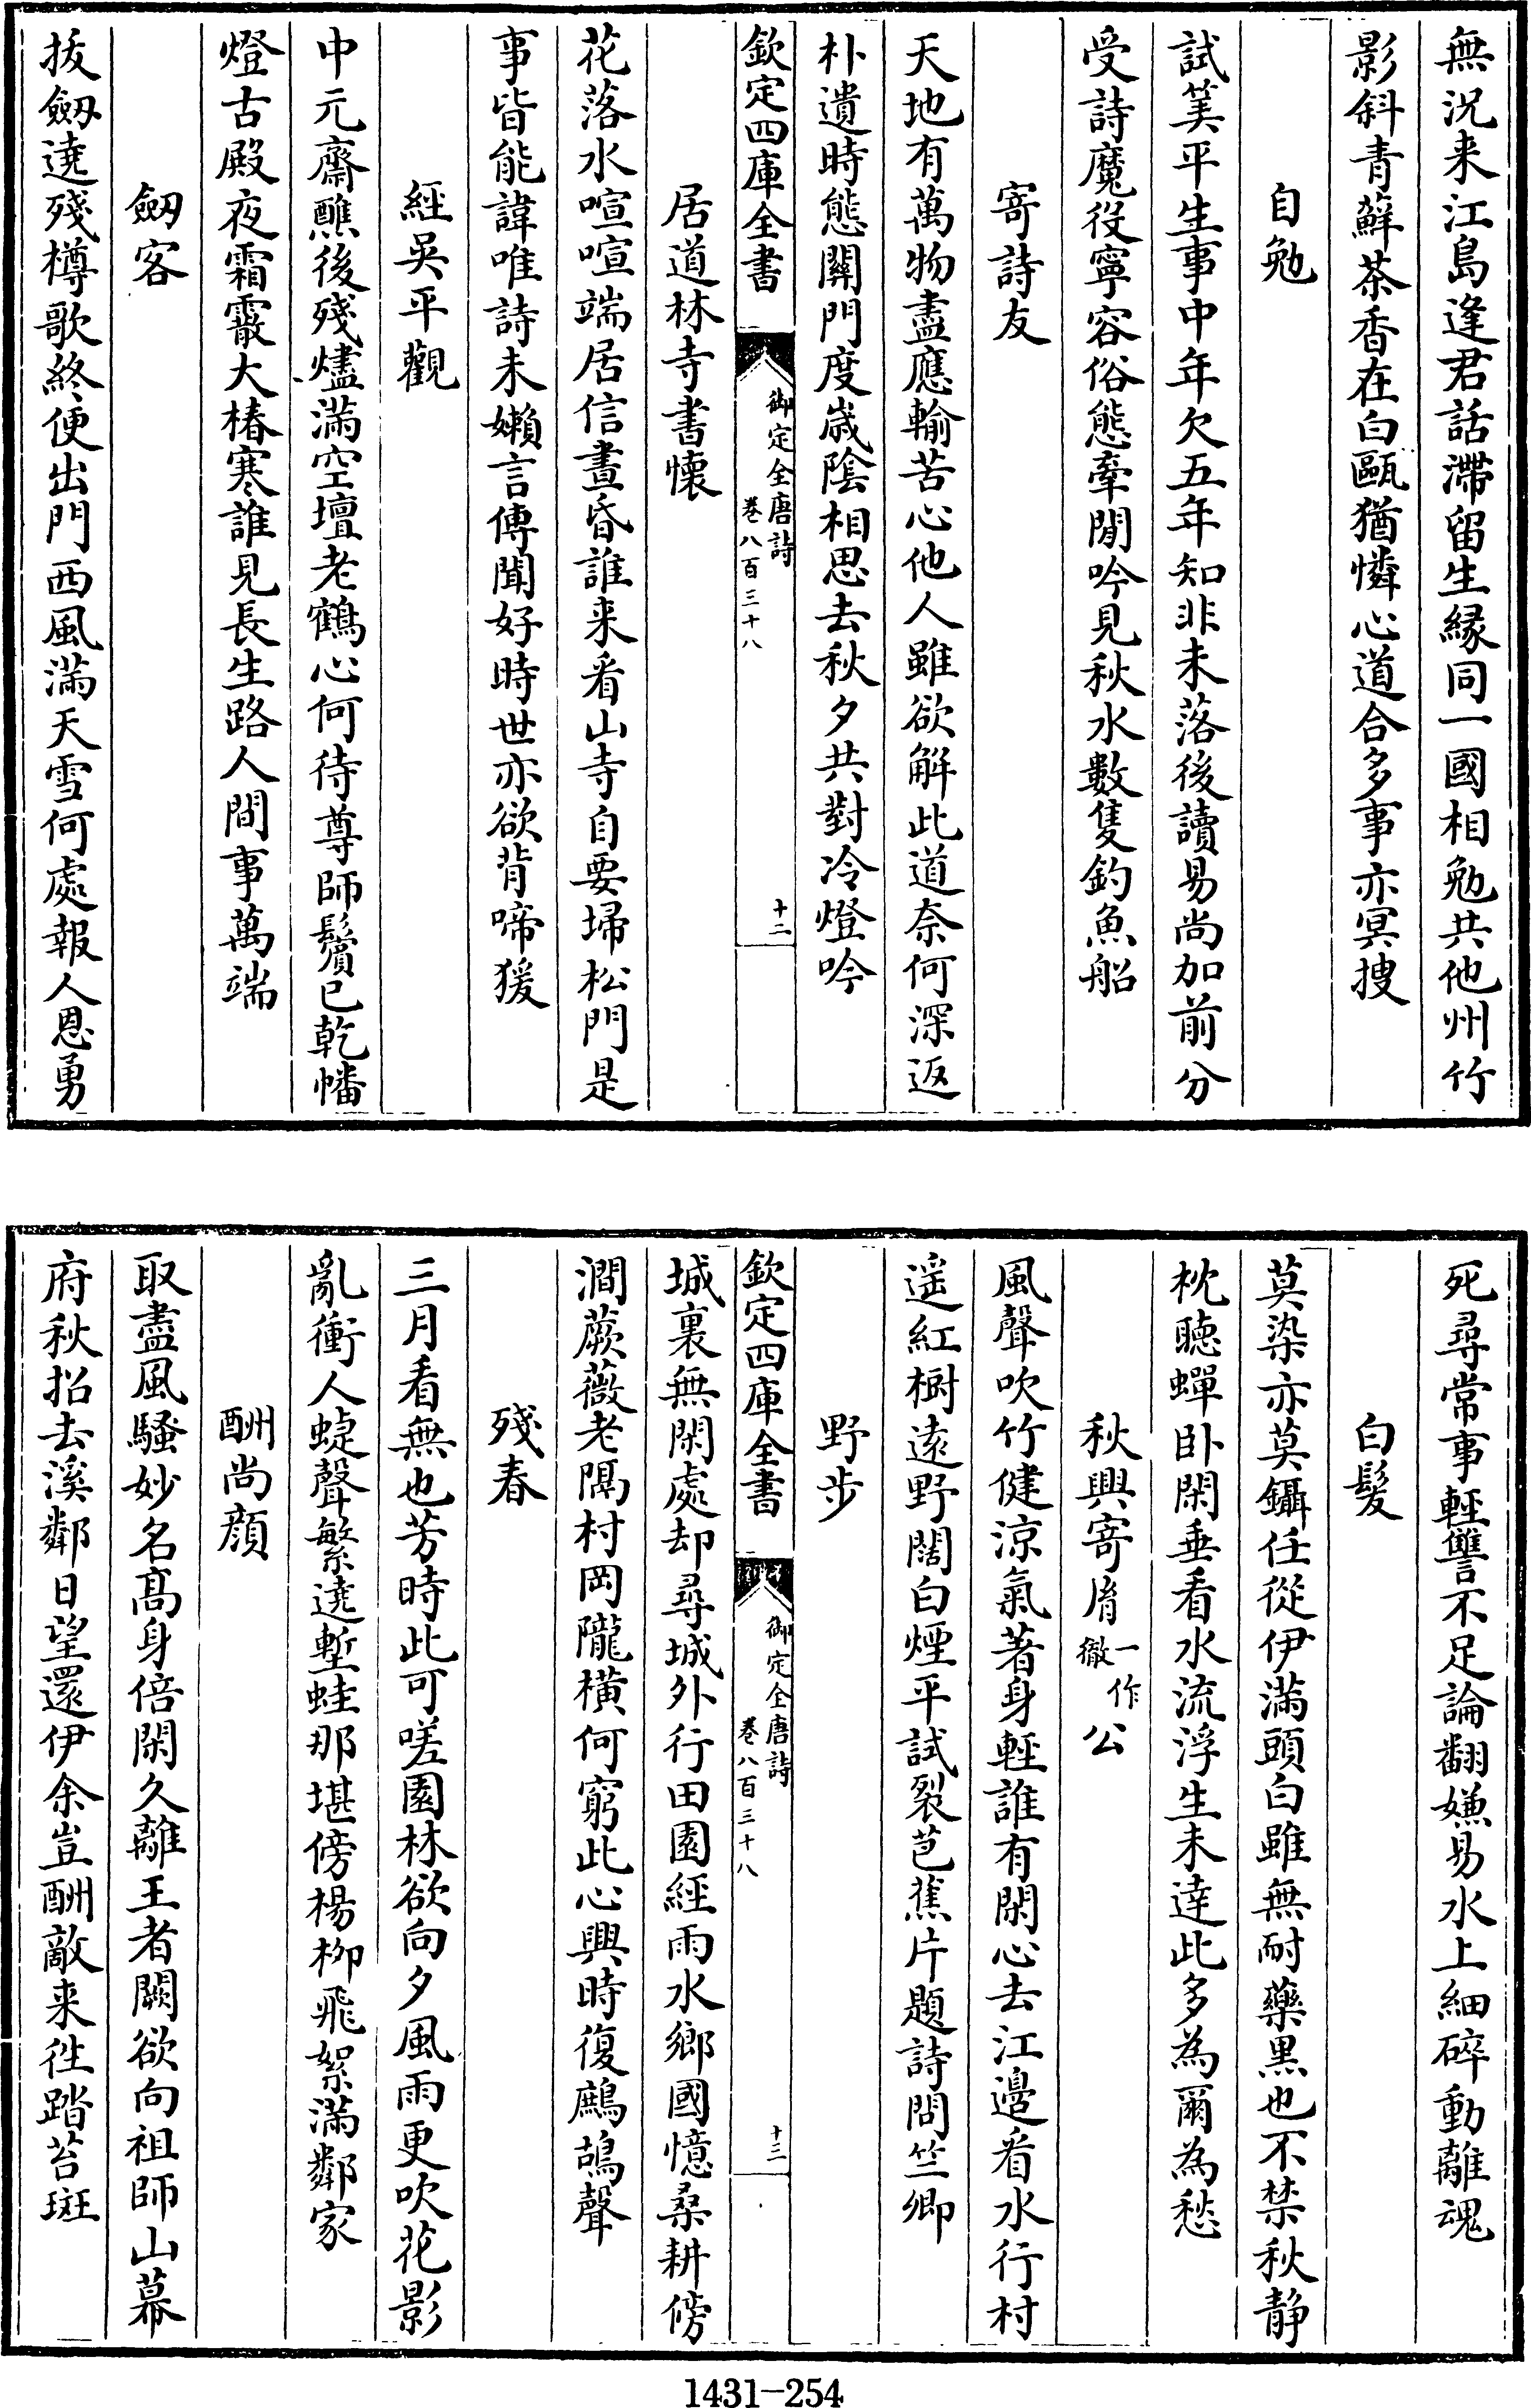 無況来江島逢君話滞留生縁同一國相勉共他州竹
影斜青蘚茶香在白甌猶憐心道合多事亦冥搜
自勉
試筭平生事中年欠五年知非未落後讀易尚加前分
受詩魔役寧容俗態牽閒吟見秋水數隻釣魚船
寄詩友
天地有萬物盡應輸苦心他人雖欲解此道奈何深返
朴遺時態關門度嵗陰相思去秋夕共對冷燈吟
欽定四庫全書
御定全唐詩
卷八百三十八
十二
居道林寺書懷
花落水喧喧端居信晝昏誰来看山寺自要埽松門是
事皆能諱唯詩未嬾言傳聞好時世亦欲背啼猨
經吳平觀
中元齋醮後殘燼滿空壇老鶴心何待尊師鬢已乾幡
燈古殿夜霜霰大椿寒誰見長生路人間事萬端
劒客
拔劒遶殘樽歌終便出門西風滿天雪何處報人恩勇
死尋常事輕讐不足論翻嫌易水上細碎動離魂
白髮
莫染亦莫鑷任從伊滿頭白雖無耐藥黑也不禁秋静
枕聽蟬卧閑垂看水流浮生未達此多為爾為愁
秋興寄㣧一作徹公
風聲吹竹健涼氣著身輕誰有閑心去江邊看水行村
遥紅樹遠野闊白煙平試裂芭蕉片題詩問竺卿
野步
欽定四庫全書
御定全唐詩
卷八百三十八
十三
城裏無閑處却尋城外行田園經雨水鄉國憶桑耕傍
澗蕨薇老隔村岡隴橫何窮此心興時復鷓鴣聲
殘春
三月看無也芳時此可嗟園林欲向夕風雨更吹花影
亂衝人蜨聲繁遶塹蛙那堪傍楊柳飛絮滿鄰家
酬尚顔
取盡風騷妙名髙身倍閑久離王者闕欲向祖師山幕
府秋招去溪鄰日望還伊余豈酬敵来徃踏苔斑
1431-254